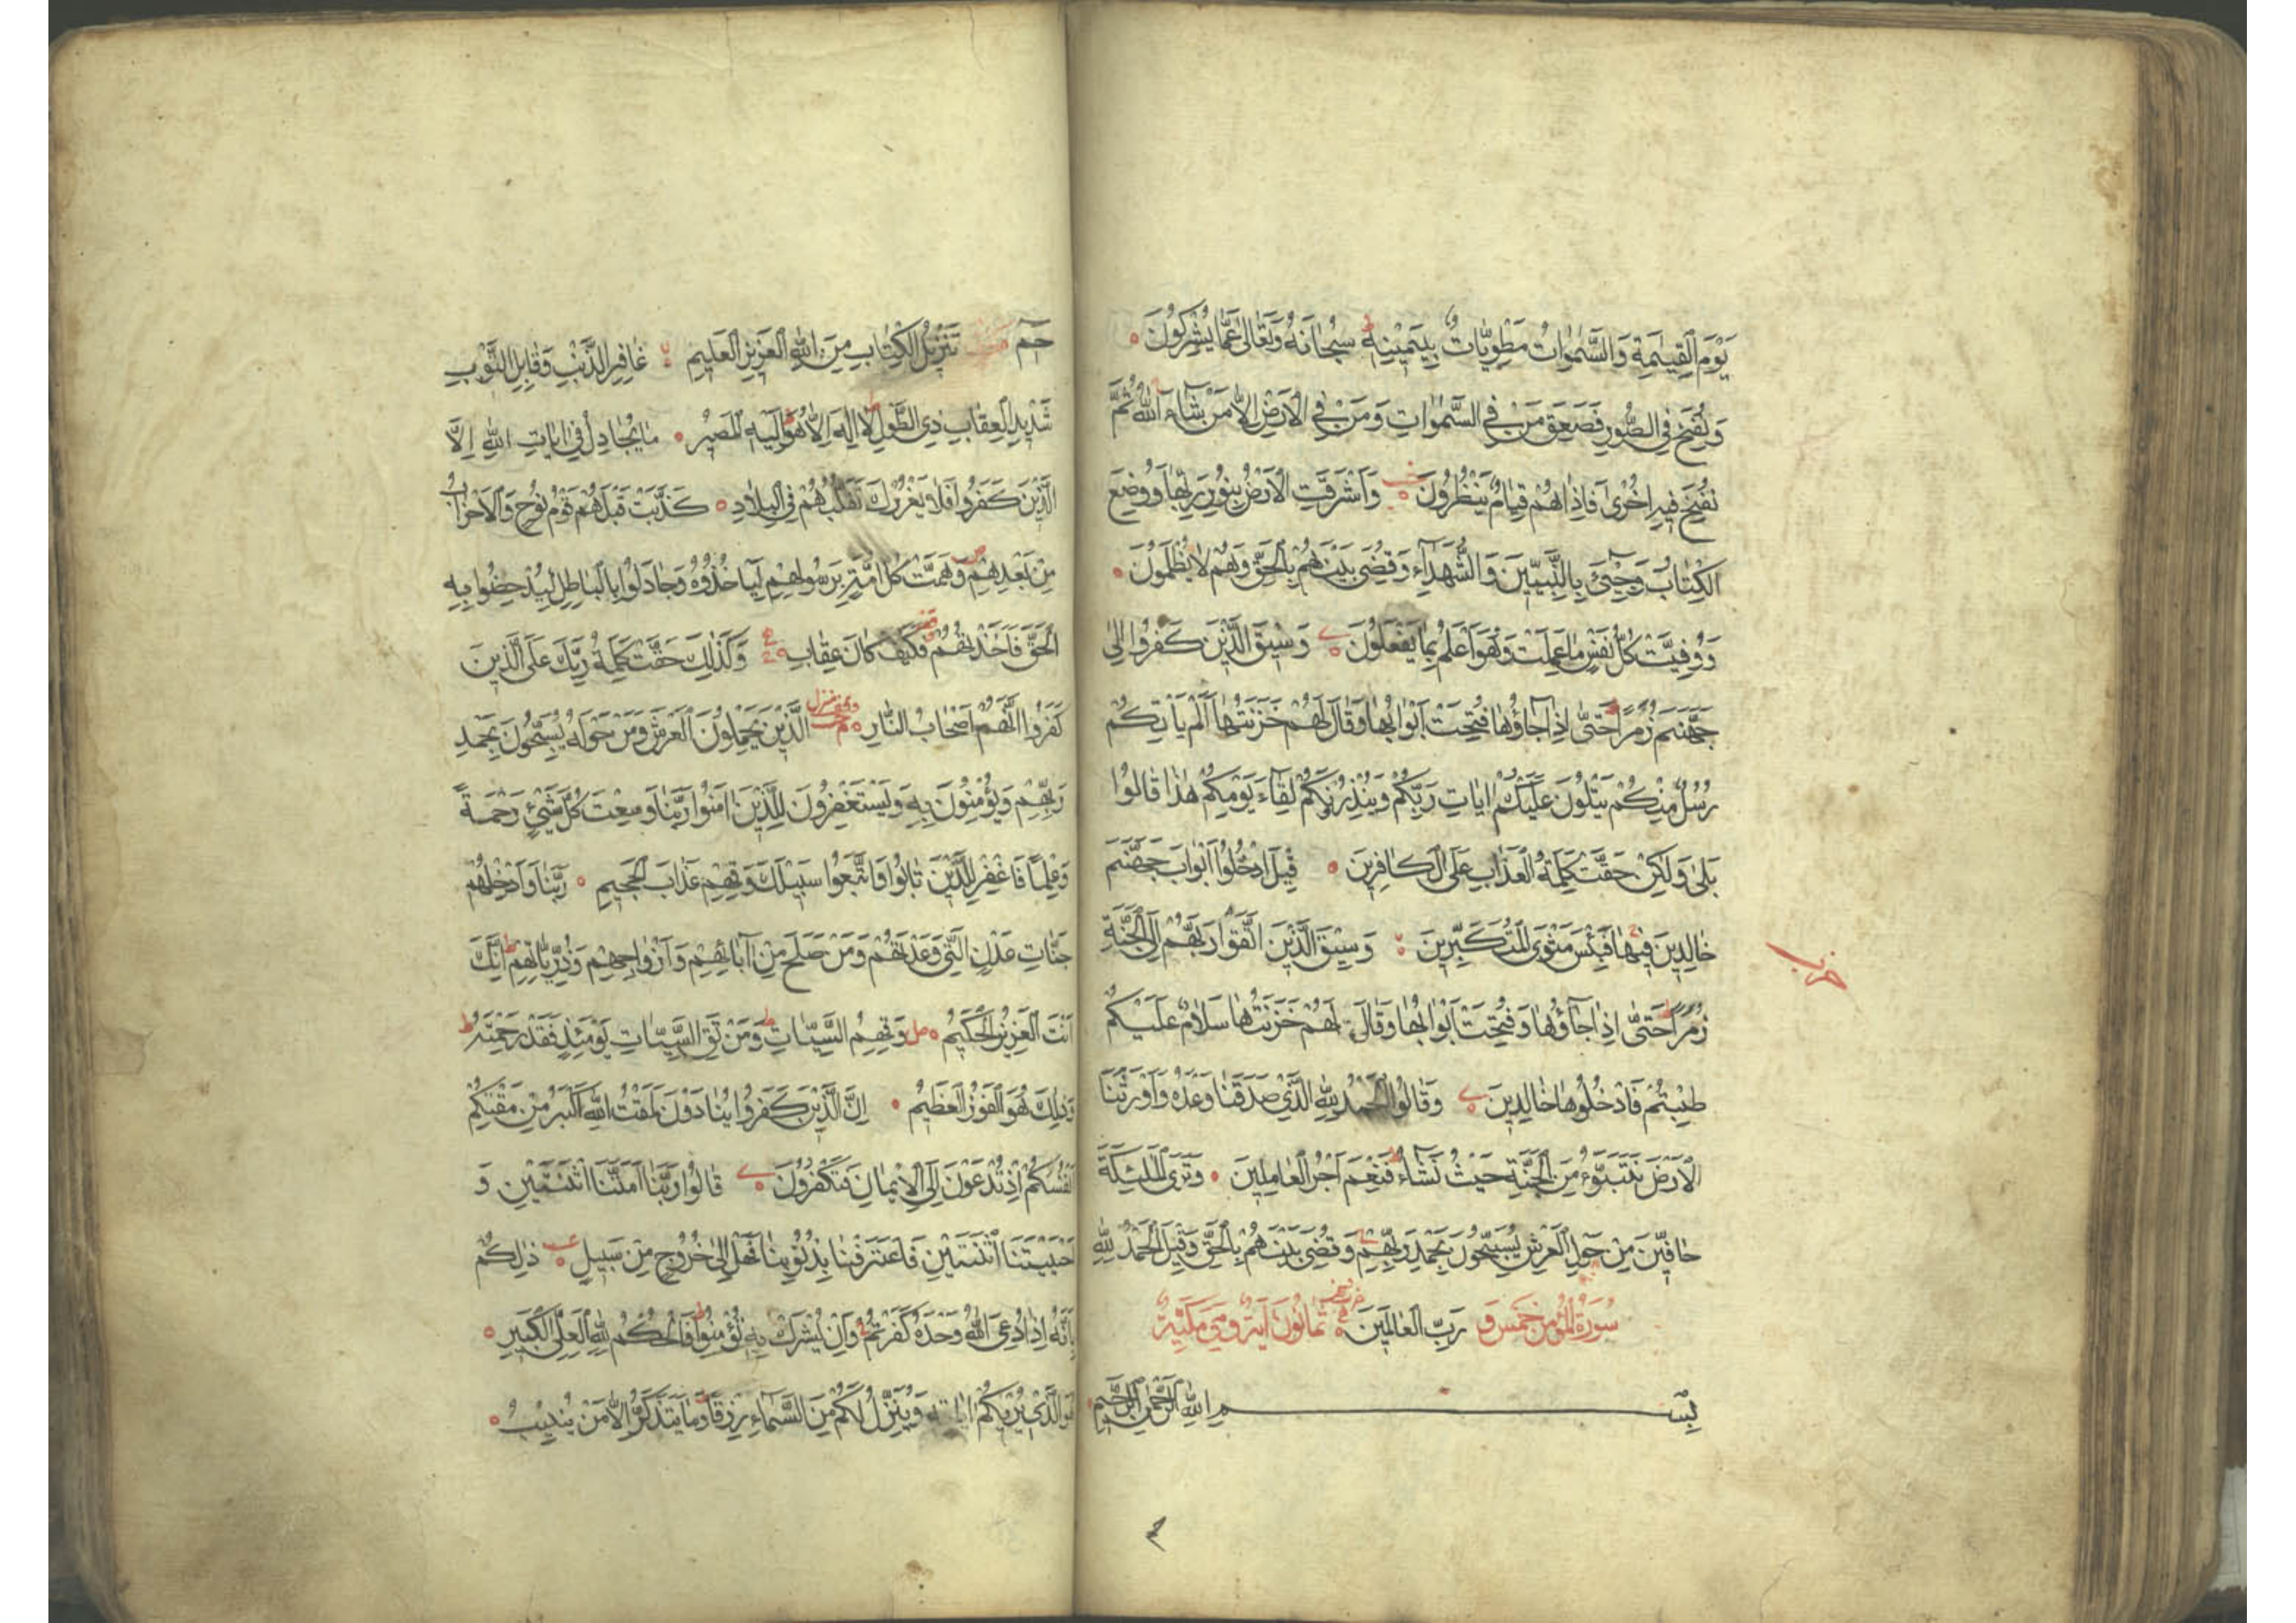 يَوْمَ الْقِيٰمَةِ وَالسَّمٰوَاتُ مَطْوِيَّاتٌ بِيَمِينِهِ سُبْحَانَهُ وَتَعَالٰى عَمَّا يُشْرِكُونَ
وَنُفِخَ فِي الصُّورِ فَصَعِقَ مَنْ فِي السَّمٰوَاتِ وَمَنْ فِي الْاَرْضِ اِلَّا مَنْ شَاءَ اللّٰهُ ثُمَّ
نُفِخَ فِيهِ اُخْرٰى فَاِذَا هُمْ قِيَامٌ يَنْظُرُونَ وَاَشْرَقَتِ الْاَرْضُ بِنُورِ رَبِّهَا وَوُضِعَ
الْكِتَابُ وَجِيْءَ بِالنَّبِيِّينَ وَالشُّهَدَاءِ وَقُضِيَ بَيْنَهُمْ بِالْحَقِّ وَهُمْ لَا يُظْلَمُونَ
وَوُفِّيَتْ كُلُّ نَفْسٍ مَا عَمِلَتْ وَهُوَ اَعْلَمُ بِمَا يَفْعَلُونَ وَسِيقَ الَّذِينَ كَفَرُوا اِلٰى
جَهَنَّمَ زُمَرًا حَتّٰى اِذَا جَاؤُهَا فُتِحَتْ اَبْوَابُهَا وَقَالَ لَهُمْ خَزَنَتُهَا اَلَمْ يَاْتِكُمْ
رُسُلٌ مِنْكُمْ يَتْلُونَ عَلَيْكُمْ اٰيَاتِ رَبِّكُمْ وَيُنْذِرُونَكُمْ لِقَاءَ يَوْمِكُمْ هٰذَا قَالُوا
بَلٰى وَلٰكِنْ حَقَّتْ كَلِمَةُ الْعَذَابِ عَلَى الْكَافِرِينَ قِيلَ ادْخُلُوا اَبْوَابَ جَهَنَّمَ
خَالِدِينَ فِيهَا فَبِئْسَ مَثْوَى الْمُتَكَبِّرِينَ وَسِيقَ الَّذِينَ اتَّقَوْا رَبَّهُمْ اِلَى الْجَنَّةِ
حزب
زُمَرًا حَتّٰى اِذَا جَاؤُهَا وَفُتِحَتْ اَبْوَابُهَا وَقَالَ لَهُمْ خَزَنَتُهَا سَلَامٌ عَلَيْكُمْ
طِبْتُمْ فَادْخُلُوهَا خَالِدِينَ وَقَالُوا الْحَمْدُ لِلّٰهِ الَّذِي صَدَقَنَا وَعْدَهُ وَاَوْرَثَنَا
الْاَرْضَ نَتَبَوَّءُ مِنَ الْجَنَّةِ حَيْثُ نَشَاءُ فَنِعْمَ اَجْرُ الْعَامِلِينَ وَتَرَى الْمَلٰئِكَةَ
حَافِّينَ مِنْ حَوْلِ الْعَرْشِ يُسَبِّحُونَ بِحَمْدِ رَبِّهِمْ وَقُضِيَ بَيْنَهُمْ بِالْحَقِّ وَقِيلَ الْحَمْدُ لِلّٰهِ
سُورَةُ الْمُؤْمِنِ خَمْسٌ وَ رَبِّ الْعَالَمِينَ ثَمَانُونَ اٰيَةً وَهِيَ مَكِّيَّةٌ
بِسْمِ اللّٰهِ الرَّحْمٰنِ الرَّحِيمِ
حٰمٓ تَنْزِيلُ الْكِتَابِ مِنَ اللّٰهِ الْعَزِيزِ الْعَلِيمِ غَافِرِ الذَّنْبِ وَقَابِلِ التَّوْبِ
شَدِيدِ الْعِقَابِ ذِي الطَّوْلِ لَا اِلٰهَ اِلَّا هُوَ اِلَيْهِ الْمَصِيرُ مَا يُجَادِلُ فِي اٰيَاتِ اللّٰهِ اِلَّا
الَّذِينَ كَفَرُوا فَلَا يَغْرُرْكَ تَقَلُّبُهُمْ فِي الْبِلَادِ كَذَّبَتْ قَبْلَهُمْ قَوْمُ نُوحٍ وَالْاَحْزَابُ
مِنْ بَعْدِهِمْ وَهَمَّتْ كُلُّ اُمَّةٍ بِرَسُولِهِمْ لِيَاْخُذُوهُ وَجَادَلُوا بِالْبَاطِلِ لِيُدْحِضُوا بِهِ
الْحَقَّ فَاَخَذْتُهُمْ فَكَيْفَ كَانَ عِقَابِ وَكَذٰلِكَ حَقَّتْ كَلِمَةُ رَبِّكَ عَلَى الَّذِينَ
كَفَرُوا اَنَّهُمْ اَصْحَابُ النَّارِ الَّذِينَ يَحْمِلُونَ الْعَرْشَ وَمَنْ حَوْلَهُ يُسَبِّحُونَ بِحَمْدِ
رَبِّهِمْ وَيُؤْمِنُونَ بِهِ وَيَسْتَغْفِرُونَ لِلَّذِينَ اٰمَنُوا رَبَّنَا وَسِعْتَ كُلَّ شَيْءٍ رَحْمَةً
وَعِلْمًا فَاغْفِرْ لِلَّذِينَ تَابُوا وَاتَّبَعُوا سَبِيلَكَ وَقِهِمْ عَذَابَ الْجَحِيمِ رَبَّنَا وَاَدْخِلْهُمْ
جَنَّاتِ عَدْنٍ الَّتِي وَعَدْتَهُمْ وَمَنْ صَلَحَ مِنْ اٰبَائِهِمْ وَاَزْوَاجِهِمْ وَذُرِّيَّاتِهِمْ اِنَّكَ
اَنْتَ الْعَزِيزُ الْحَكِيمُ وَقِهِمُ السَّيِّاٰتِ وَمَنْ تَقِ السَّيِّاٰتِ يَوْمَئِذٍ فَقَدْ رَحِمْتَهُ
وَذٰلِكَ هُوَ الْفَوْزُ الْعَظِيمُ اِنَّ الَّذِينَ كَفَرُوا يُنَادَوْنَ لَمَقْتُ اللّٰهِ اَكْبَرُ مِنْ مَقْتِكُمْ
اَنْفُسَكُمْ اِذْ تُدْعَوْنَ اِلَى الْاِيمَانِ فَتَكْفُرُونَ قَالُوا رَبَّنَا اَمَتَّنَا اثْنَتَيْنِ وَ
اَحْيَيْتَنَا اثْنَتَيْنِ فَاعْتَرَفْنَا بِذُنُوبِنَا فَهَلْ اِلٰى خُرُوجٍ مِنْ سَبِيلٍ ذٰلِكُمْ
بِاَنَّهُ اِذَا دُعِيَ اللّٰهُ وَحْدَهُ كَفَرْتُمْ وَاِنْ يُشْرَكْ بِهِ تُؤْمِنُوا فَالْحُكْمُ لِلّٰهِ الْعَلِيِّ الْكَبِيرِ
هُوَ الَّذِي يُرِيكُمْ اٰيَاتِهِ وَيُنَزِّلُ لَكُمْ مِنَ السَّمَاءِ رِزْقًا وَمَا يَتَذَكَّرُ اِلَّا مَنْ يُنِيبُ